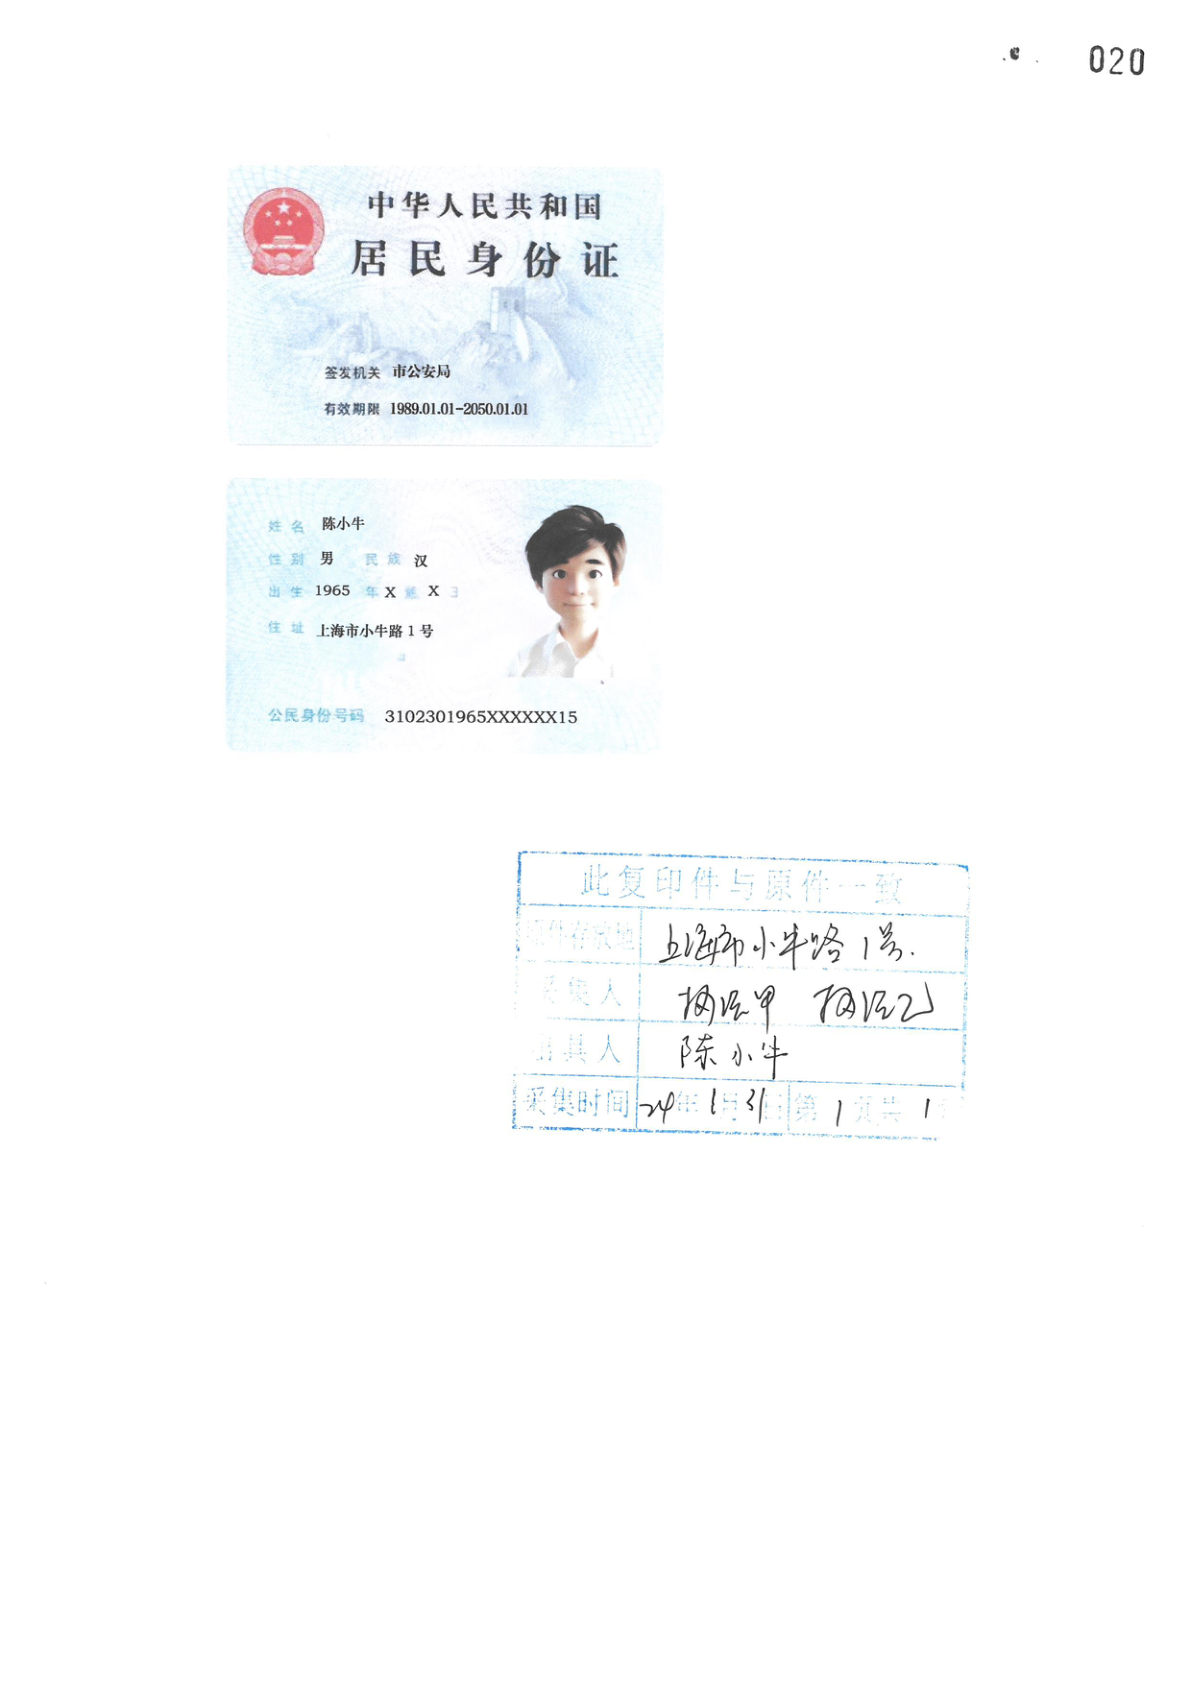 020
中华人民共和国
居民身份证
签发机关 市公安局
有效期限 1989.01.01-2050.01.01
姓名 陈小牛
性别 男 民族 汉
出生 1965 年 X 月 X 日
住址 上海市小牛路 1 号
公民身份号码 3102301965XXXXXX15
此复印件与原件一致
原件存放地 上海市小牛路1号.
采集人 杨运甲 杨运乙
出具人 陈小牛
采集时间 24年1月31日 第1页共1页